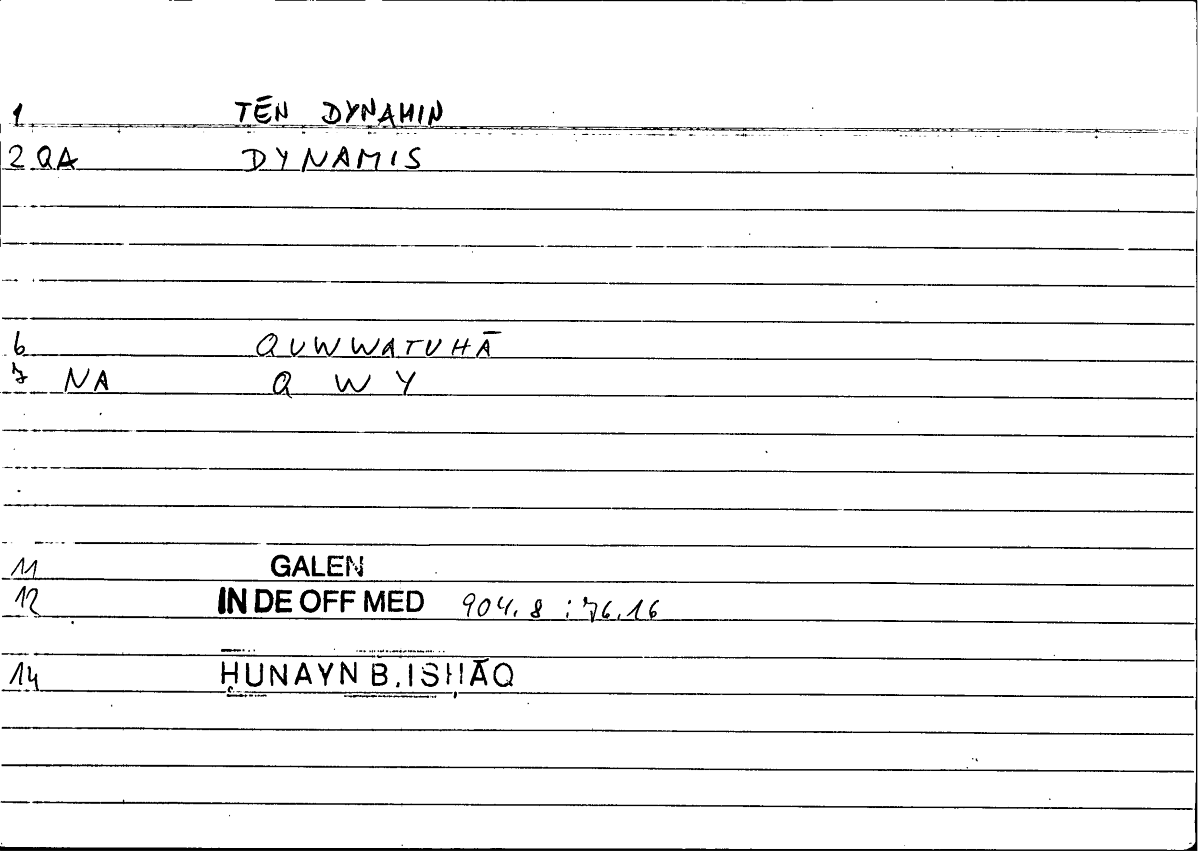 1 TĒN DYNAMIN
2 QA DYNAMIS
6 QUWWATUHĀ
7 NA Q W Y
11 GALEN
12 IN DE OFF MED 904.8 : 76.16
14 ḤUNAYN B. ISḤĀQ